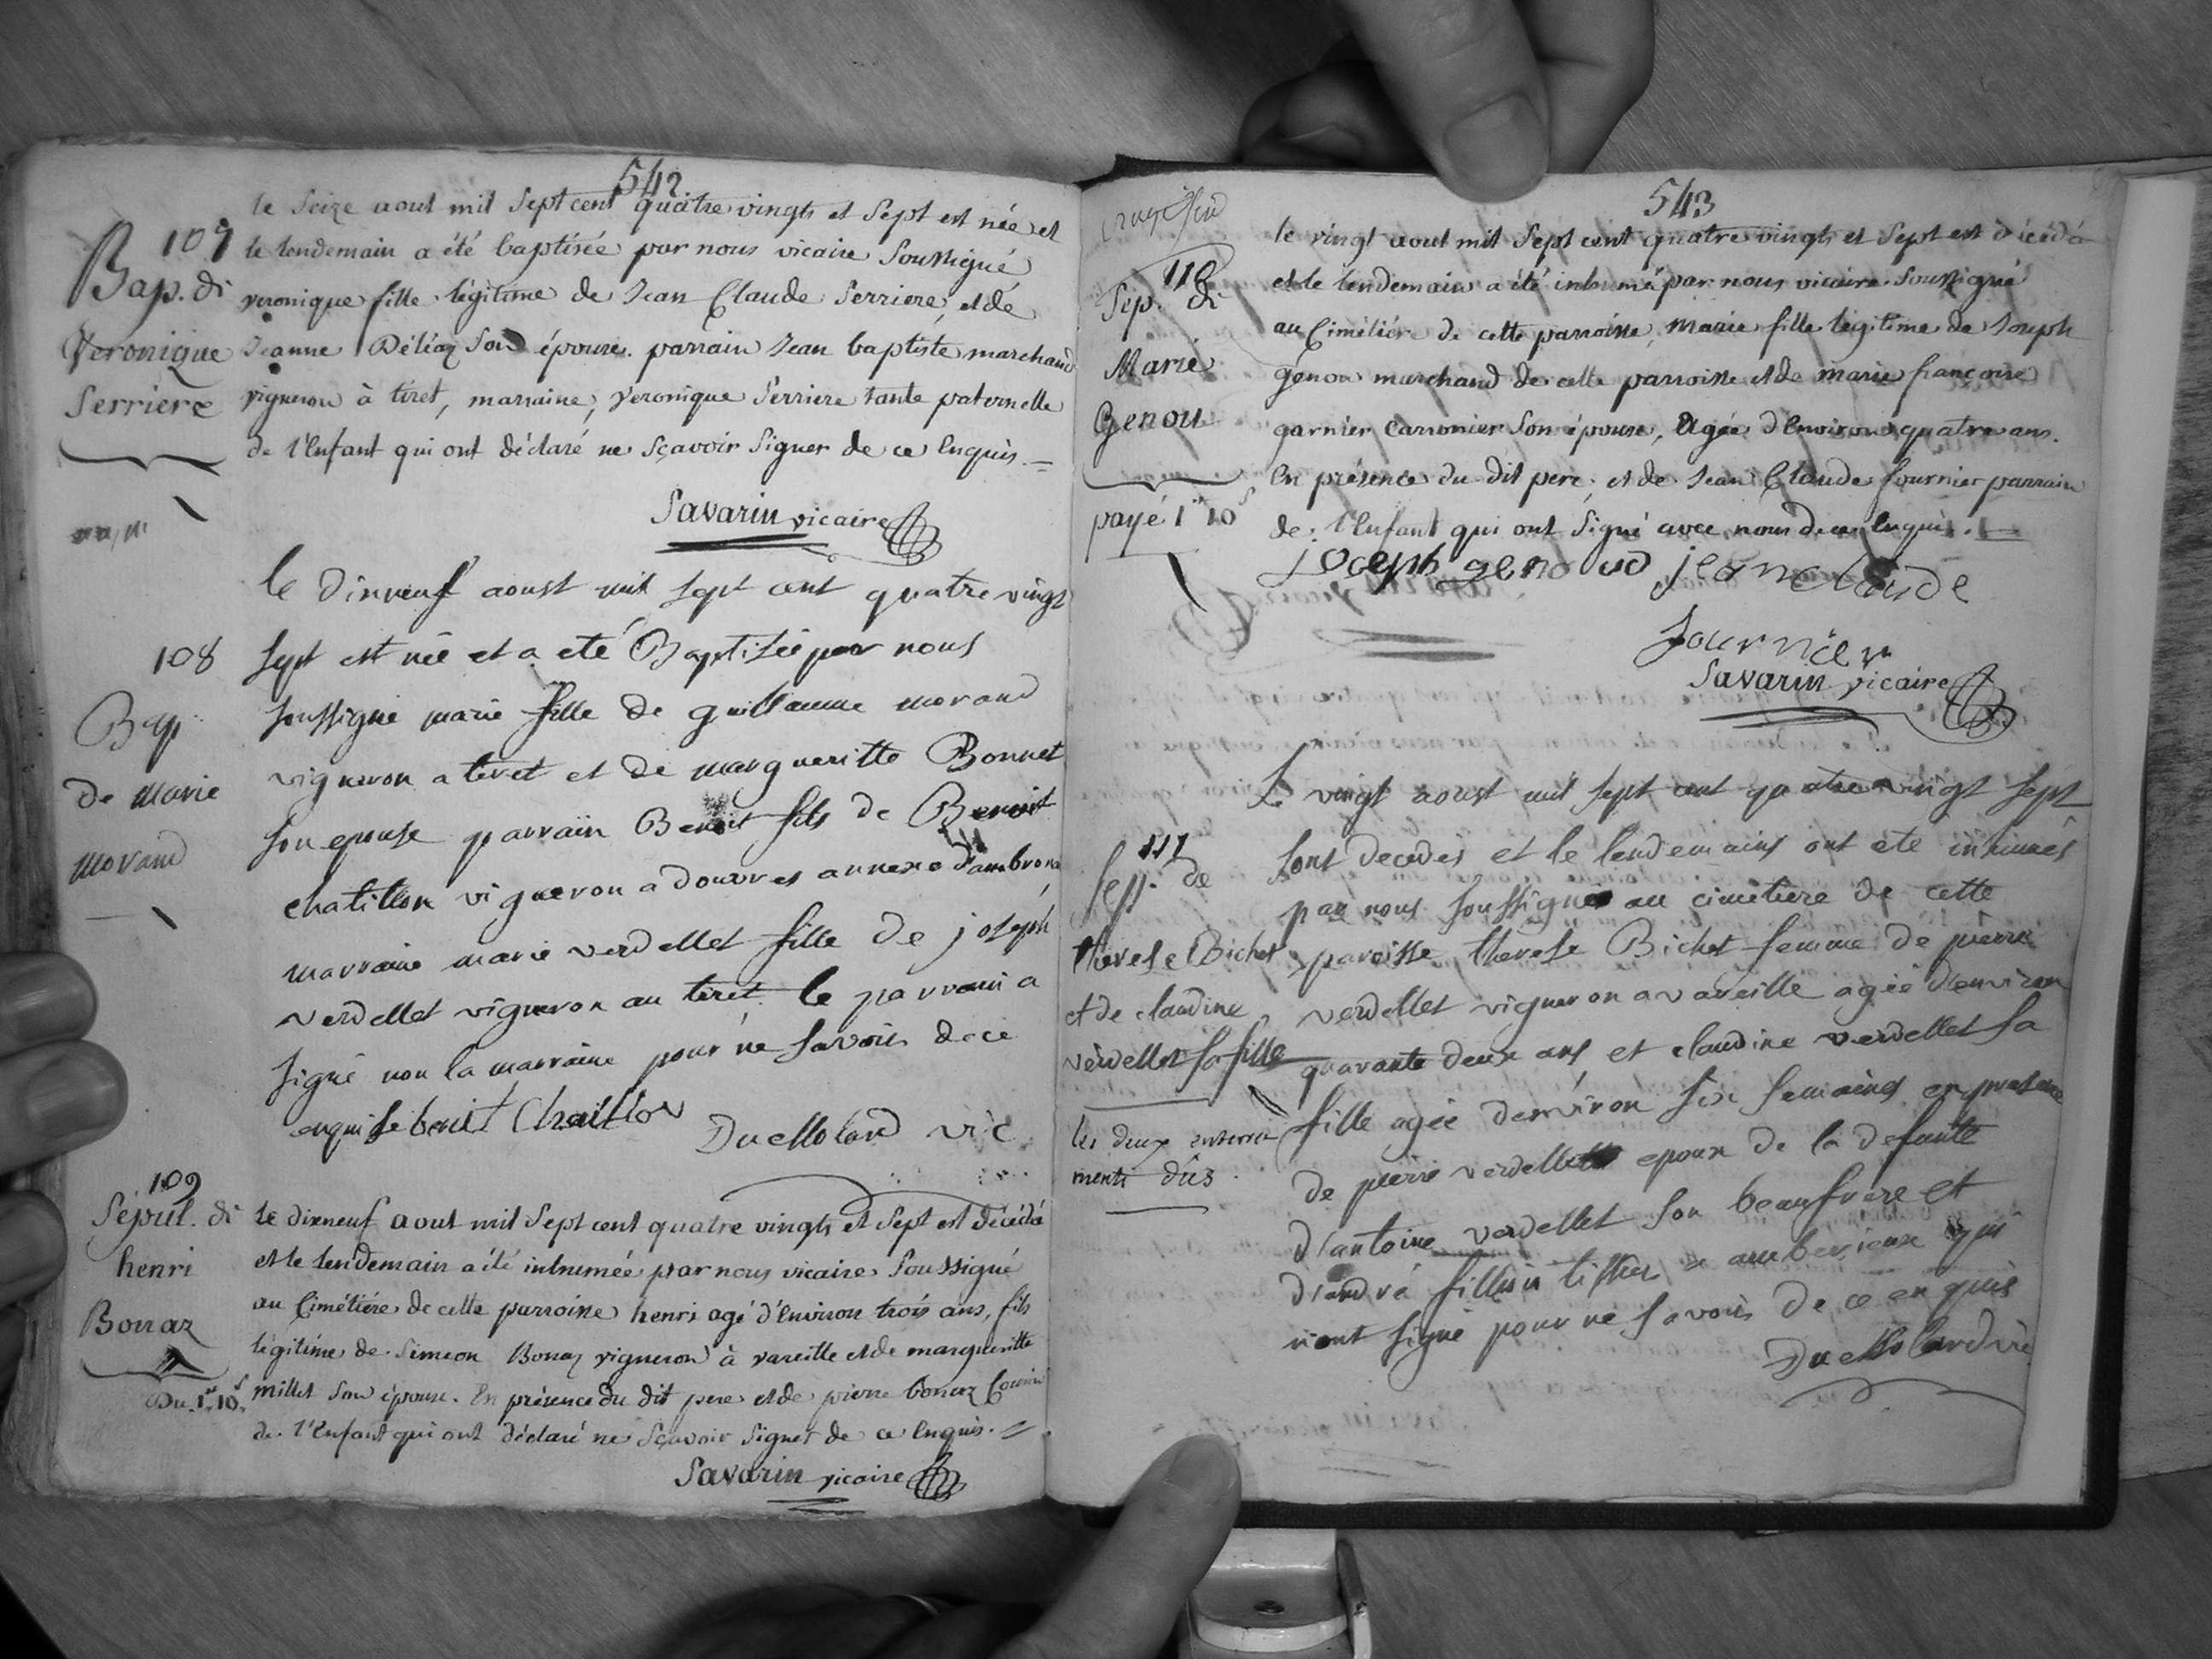 542
107
Bap. de
Veronique
Serriere
le Seize aout mil Sept cent quatre vingts et Sept est née et
le lendemain a été baptisée par nous vicaire Soussigné
veronique fille légitime de Jean Claude Serriere, et de
Jeanne Déléaz Son épouse. parrain Jean baptiste marchand
vigneron à tiret, marraine, veronique Serriere tante paternelle
de l'Enfant qui ont déclaré ne Sçavoir Signer de ce Enquis.
Savarin vicaire
108
Bap.
de Marie
morand
le dixneuf aoust mil sept cent quatre vingt
sept est née et a eté Baptisée par nous
soussigné marie fille de guillaume morand
vigneron a tiret et de margueritte Bonnet
son epouse parrain Benoit fils de Benoit
chatillon vigneron a douvres annexe d'ambronay
marraine marie verdellet fille de joseph
verdellet vigneron au tiret. le parrain a
signé non la marraine pour ne savoir de ce
enquise benoit Chatillon
Duchollard vic
109
Sépul. de
henri
Bonaz
Du. 1. 10.
Le dixneuf aout mil Sept cent quatre vingts et Sept est décédé
et le lendemain a été inhumée par nous vicaire Soussigné
au Cimétiére de cette parroisse henri agé d'Environ trois ans, fils
légitime de Simeon Bonaz vigneron à vareille et de margueritte
millet Son épouse. En présence du dit pere et de pierre bonaz Cousin
de l'Enfant qui ont déclaré ne Sçavoir Signer de ce Enquis.
Savarin vicaire
543
110
Sép. de
Marie
Genou
payé 1 10
le vingt aout mil Sept cent quatre vingts et Sept est décédé
et le lendemain a été inhumé par nous vicaire Soussigné
au Cimétiére de cette parroisse, Marie fille légitime de Joseph
génou marchand de cette parroisse et de marie françoise
garnier Carronier Son épouse, Agée d'Environ quatre ans.
En présence du dit pere, et de Jean Claude fournier parrain
de l'Enfant qui ont Signé avec nous de ce Enquis.
joseph genoud jean claude
fournier
Savarin vicaire
111
sep. de
therese Bichet
et de claudine
verdellet sa fille
les deux enterre
ments dûs
Le vingt aoust mil sept cent quatre vingt sept
sont decedes et le lendemains ont eté inhumés
par nous soussigné au cimetiere de cette
paroisse therese Bichet femme de pierre
verdellet vigneron a vareille agée d'environ
quarante deux ans, et claudine verdellet sa
fille agée denviron six semaines en presence
de pierre verdellet epoux de la defunte
d'antoine verdellet son beaufrere et
d'andré tisser a amberieux qui
n'ont signé pour ne savoir de ce enquis
Duchollard vic